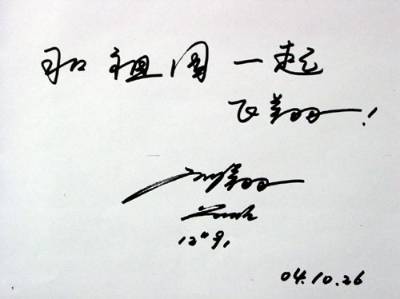 和祖国一起
飞翔！
刘翔
12"91
04.10.26